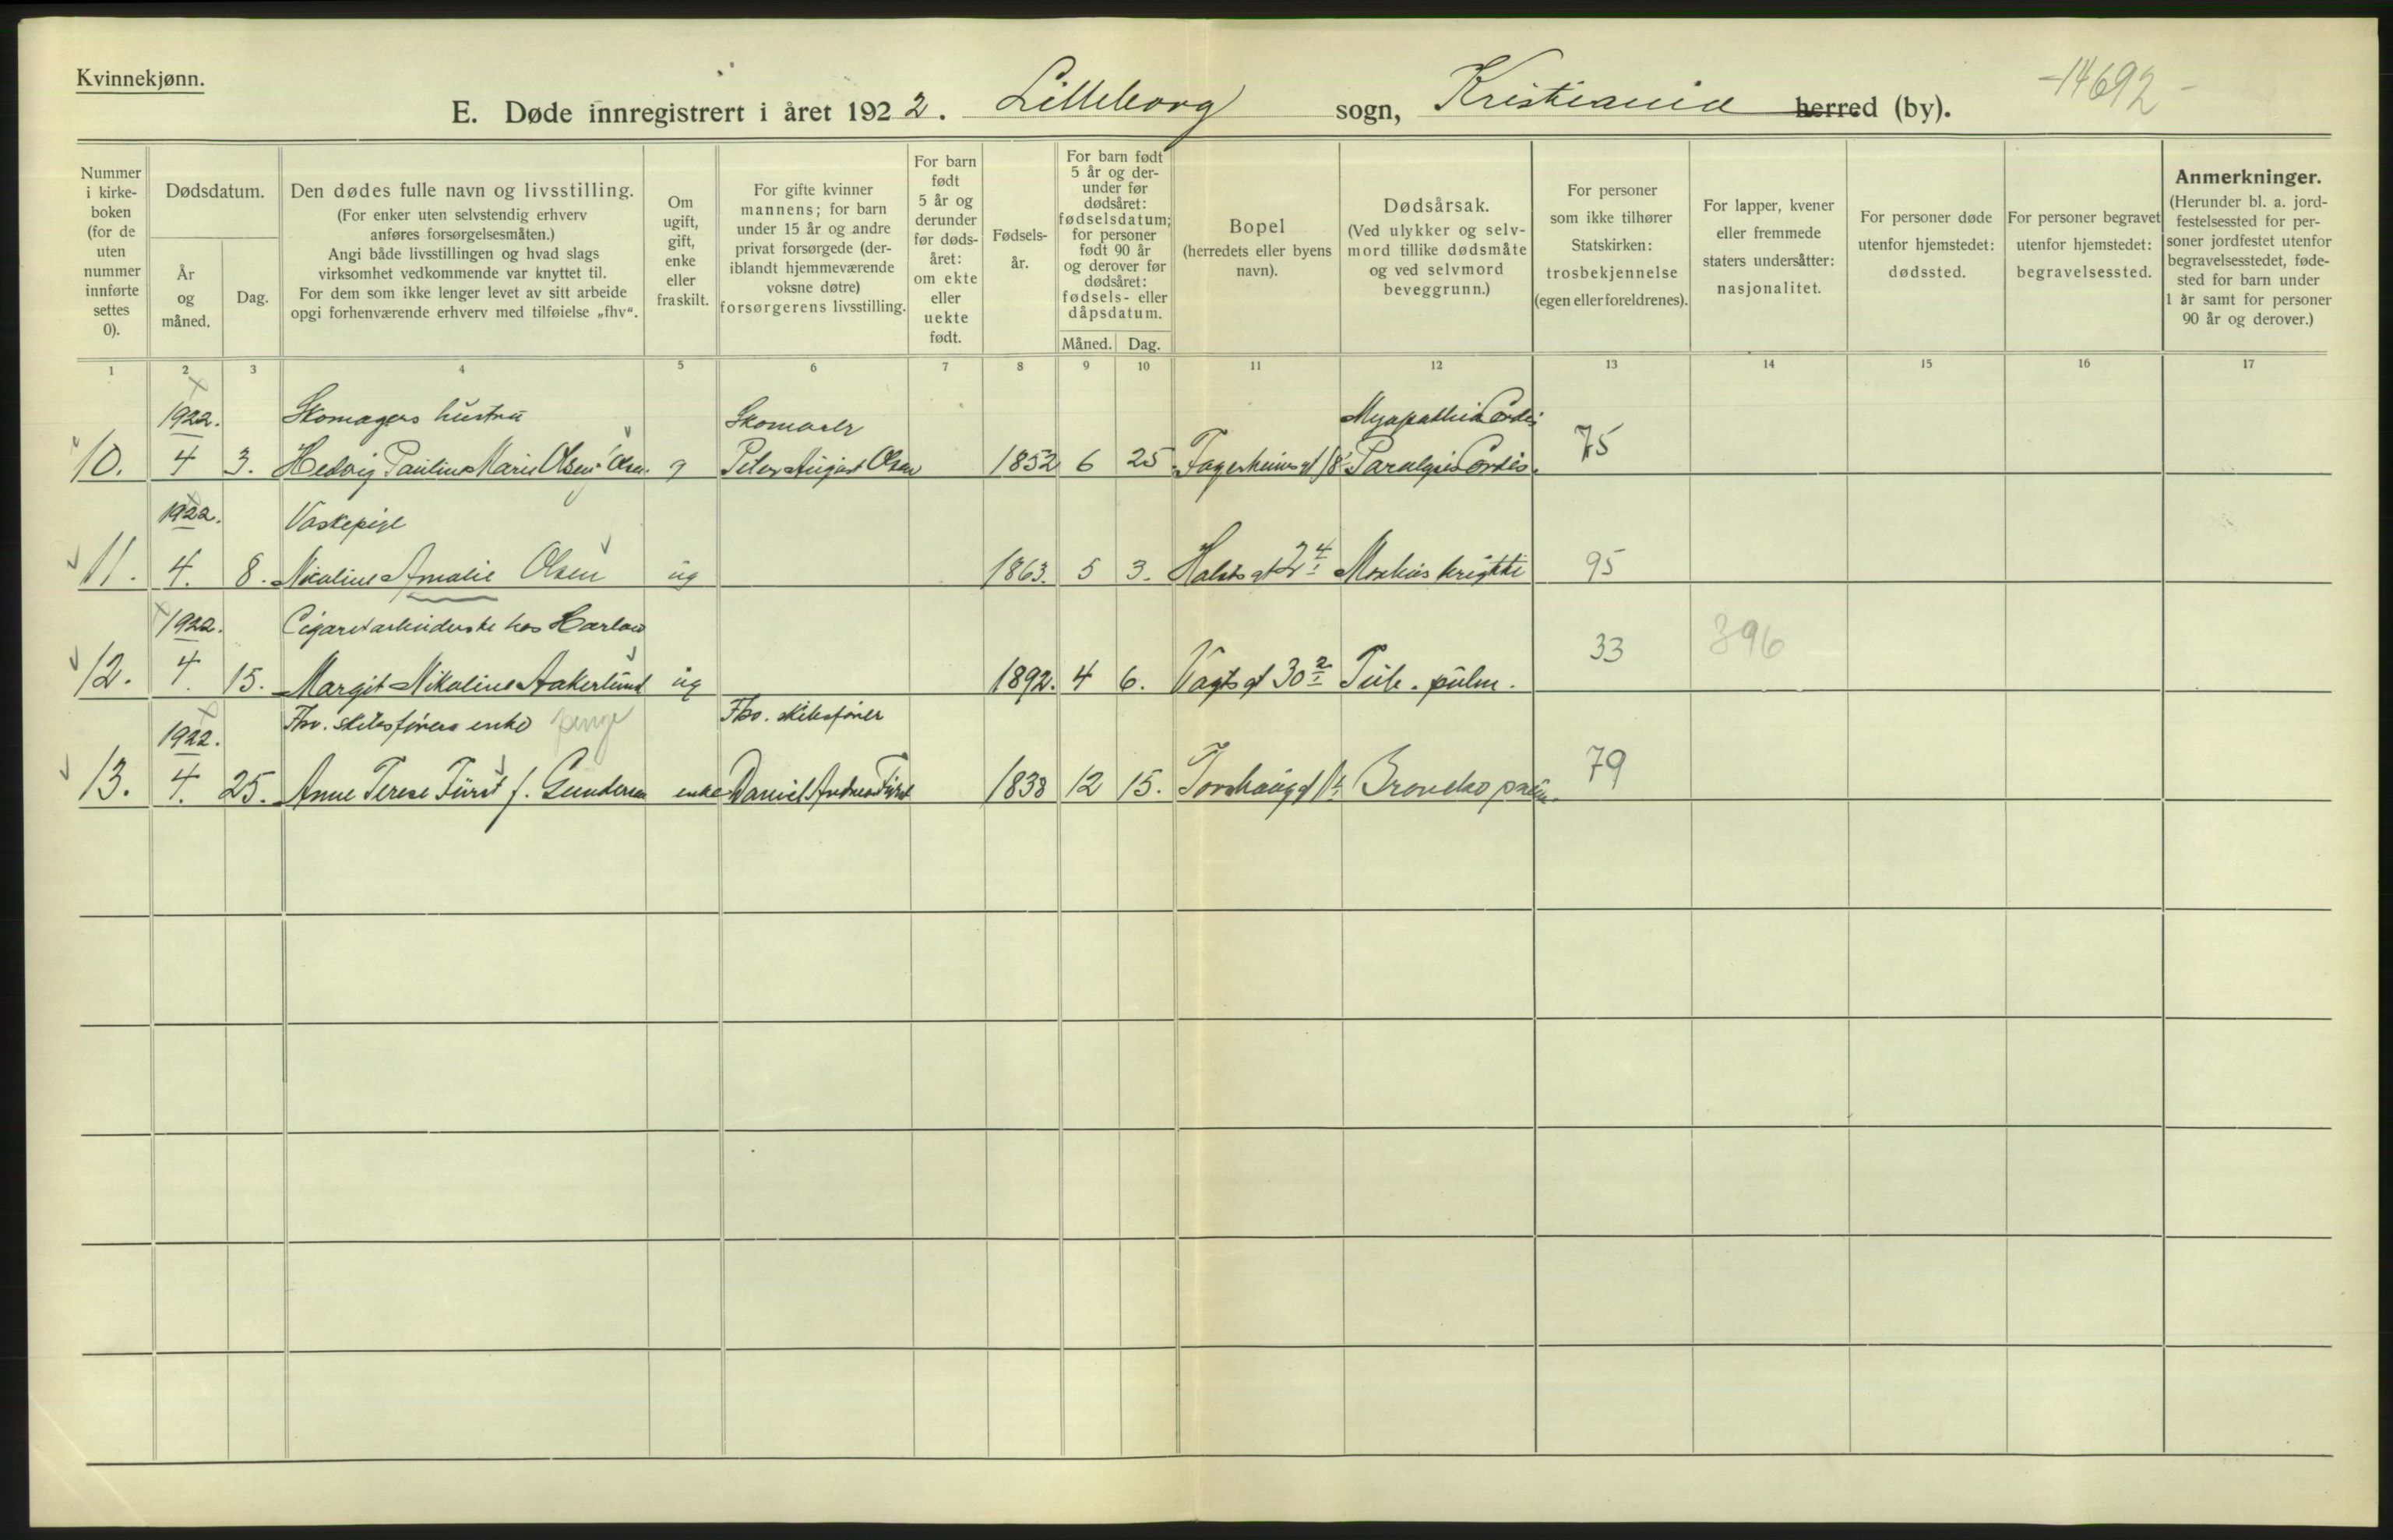 Kvinnekjønn.
-14692-
E. Døde innregistrert i året 1922. Lilleborg sogn, Kristiania herred (by).
Nummer i kirkeboken (for de uten nummer innførte settes 0).
Dødsdatum.
År og måned.
Dag.
Den dødes fulle navn og livsstilling.
(For enker uten selvstendig erhverv anføres forsørgelsesmåten.)
Angi både livsstillingen og hvad slags virksomhet vedkommende var knyttet til.
For dem som ikke lenger levet av sitt arbeide opgi forhenværende erhverv med tilføielse „fhv“.
Om ugift, gift, enke eller fraskilt.
For gifte kvinner mannens; for barn under 15 år og andre privat forsørgede (deriblandt hjemmeværende voksne døtre) forsørgerens livsstilling.
For barn født 5 år og derunder før dødsåret: om ekte eller uekte født.
Fødselsår.
For barn født 5 år og derunder før dødsåret: fødselsdatum; for personer født 90 år og derover før dødsåret: fødsels- eller dåpsdatum.
Måned. Dag.
Bopel
(herredets eller byens navn).
Dødsårsak.
(Ved ulykker og selvmord tillike dødsmåte og ved selvmord beveggrunn.)
For personer som ikke tilhører Statskirken: trosbekjennelse (egen eller foreldrenes).
For lapper, kvener eller fremmede staters undersåtter: nasjonalitet.
For personer døde utenfor hjemstedet: dødssted.
For personer begravet utenfor hjemstedet: begravelsessted.
Anmerkninger.
(Herunder bl. a. jordfestelsessted for personer jordfestet utenfor begravelsesstedet, fødested for barn under 1 år samt for personer 90 år og derover.)
1 2 3 4 5 6 7 8 9 10 11 12 13 14 15 16 17
1922. Skomagers hustru Myopathia Cordis
10. 4 3. Hedvig Pauline Marie Olsen f. Olsen g Peter August Olsen 1852 6 25 Fagerheimsgt 18 Paralysis Cordis. 75
1922. Vaskepige
11. 4. 8. Nicoline Amalie Olsen ug 1863. 5 3. 95
1922. Cigaretarbeiderske hos Harlow
12. 4 15. Margit Nikoline Aakerlund ug 1892. 4 6. Vogts gt 30 2/I Tub. pulm. 33 396
1922. Fhv. skibsførers enke Fhv. skibsfører
13. 4. 25. Anne Terese Fürst f. Gundersen enke Daniel Andreas Fürst 1838 12 15. 79